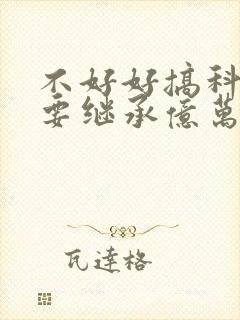 不好好搞科
要继承億萬
瓦達格